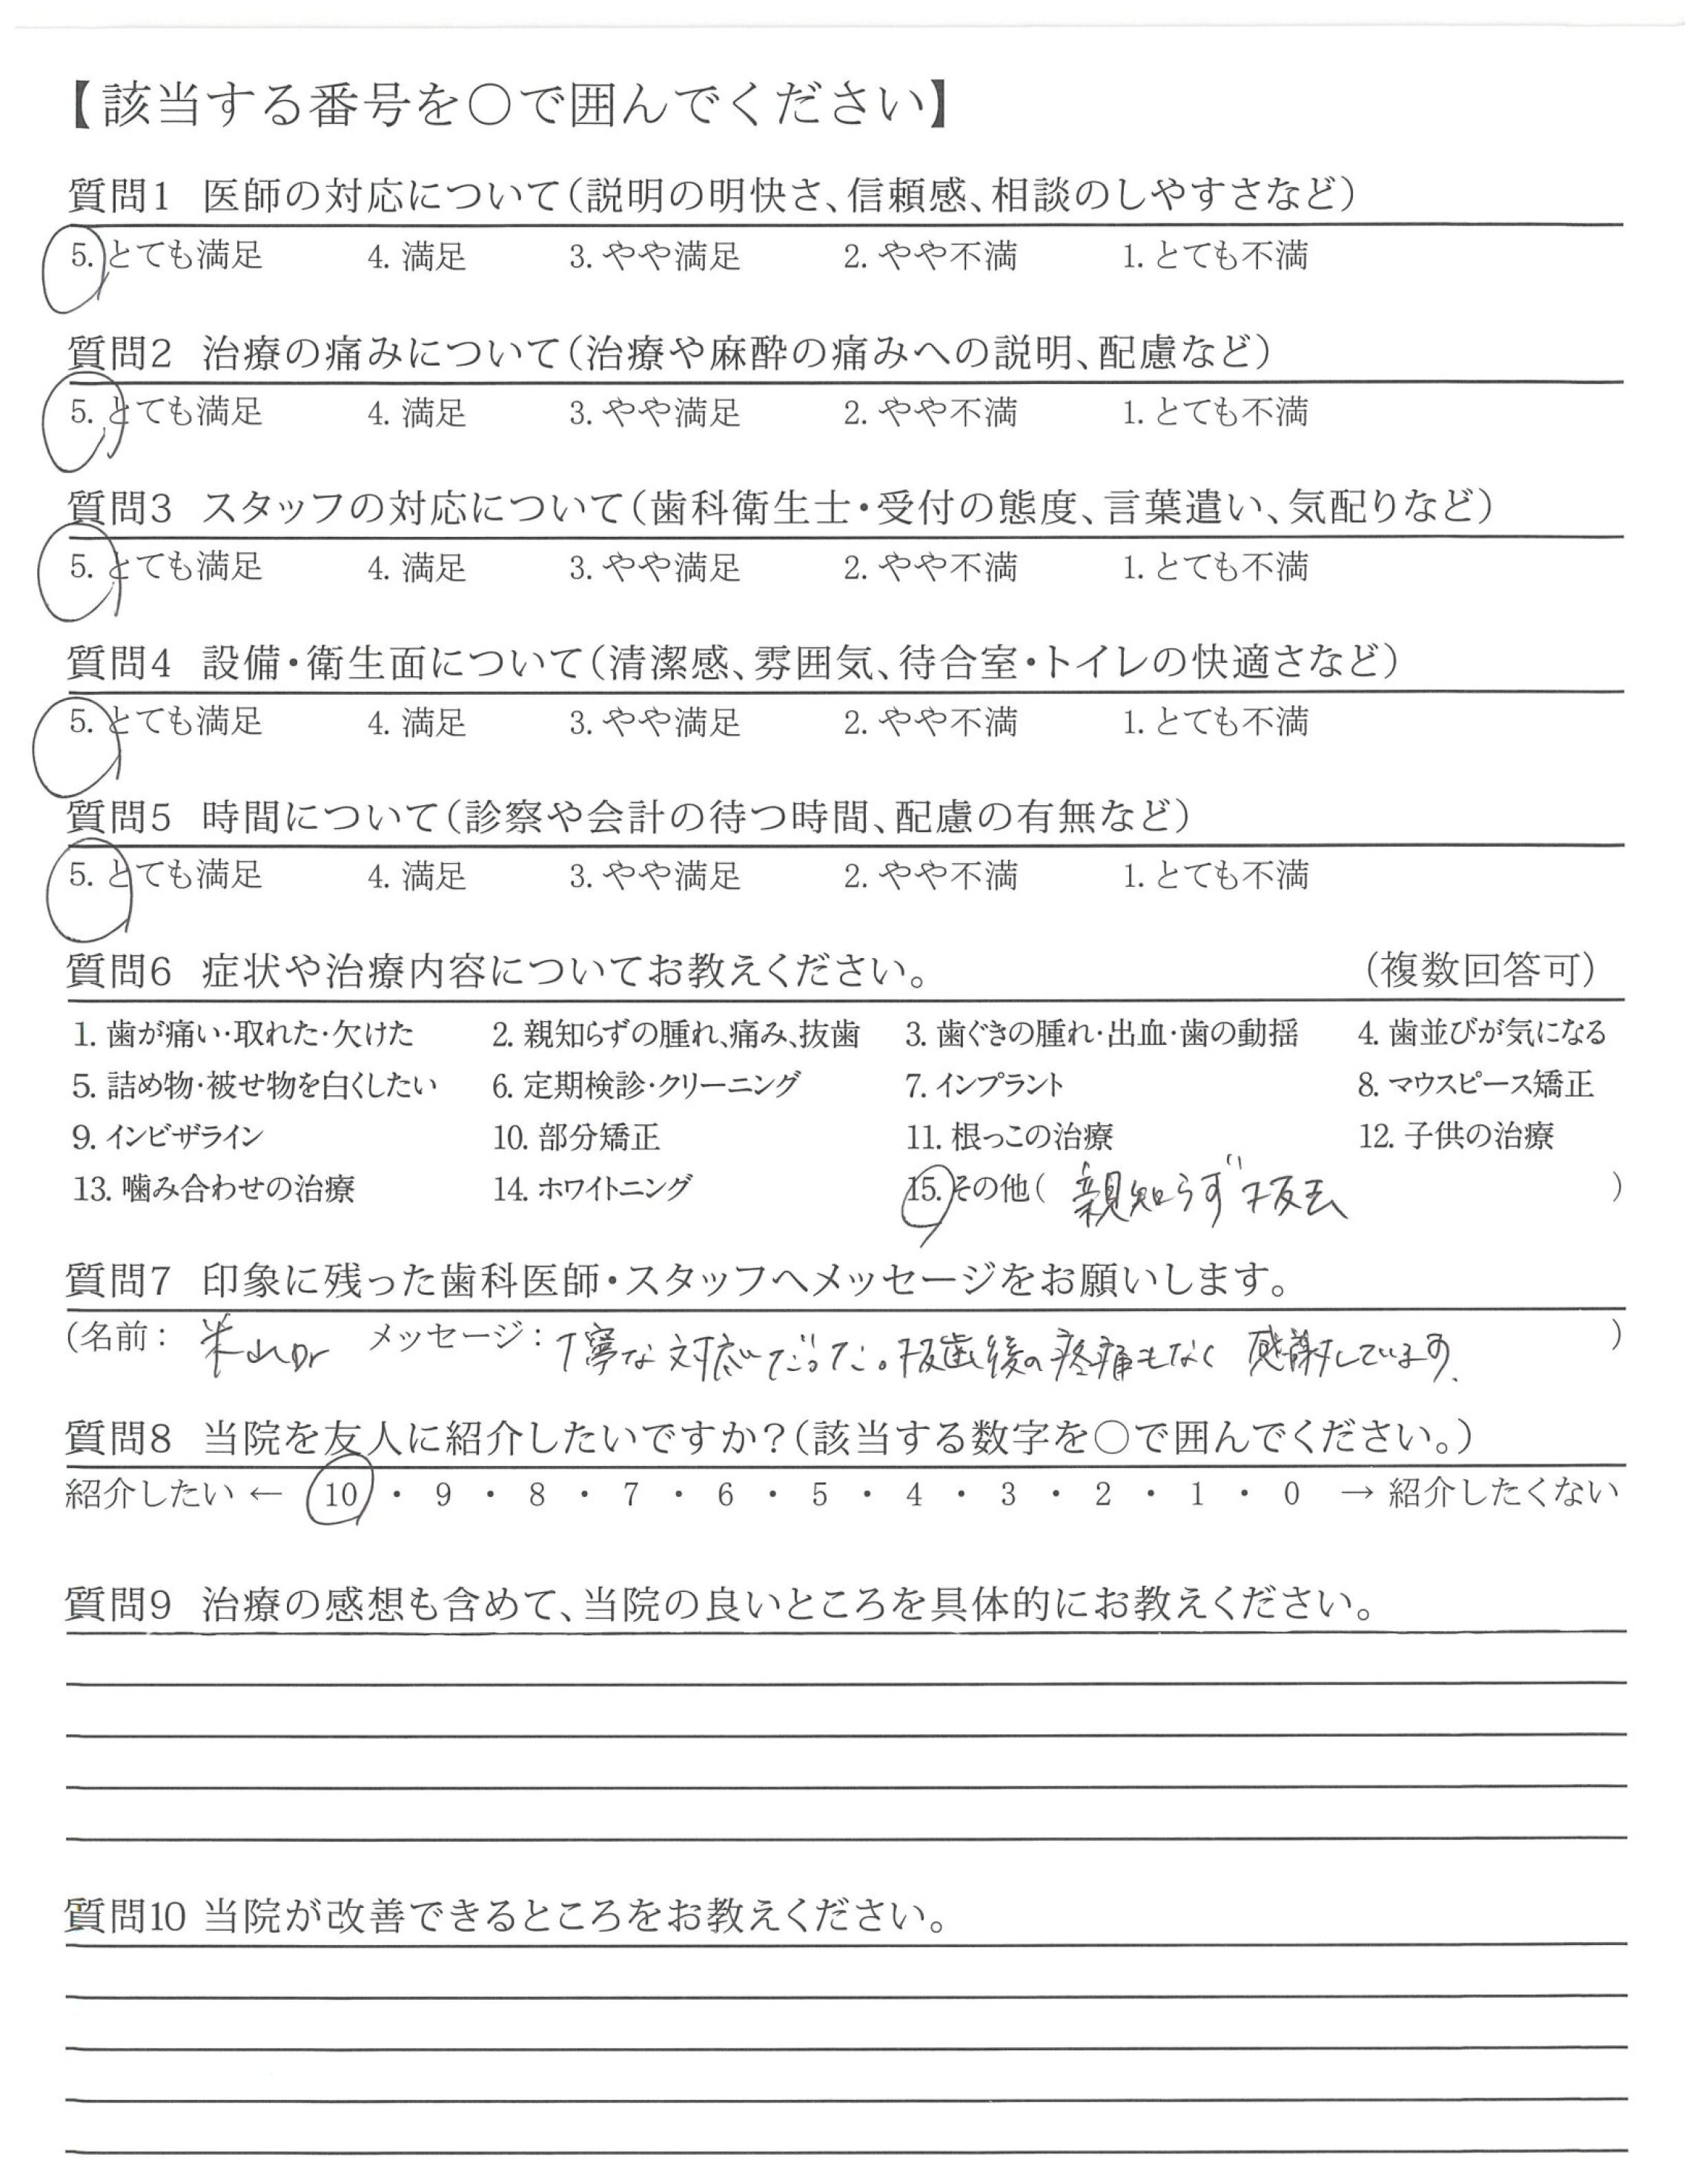 【該当する番号を○で囲んでください】
質問1 医師の対応について(説明の明快さ、信頼感、相談のしやすさなど)
5. とても満足 4. 満足 3. やや満足 2. やや不満 1. とても不満
質問2 治療の痛みについて(治療や麻酔の痛みへの説明、配慮など)
5. とても満足 4. 満足 3. やや満足 2. やや不満 1. とても不満
質問3 スタッフの対応について(歯科衛生士・受付の態度、言葉遣い、気配りなど)
5. とても満足 4. 満足 3. やや満足 2. やや不満 1. とても不満
質問4 設備・衛生面について(清潔感、雰囲気、待合室・トイレの快適さなど)
5. とても満足 4. 満足 3. やや満足 2. やや不満 1. とても不満
質問5 時間について(診察や会計の待つ時間、配慮の有無など)
5. とても満足 4. 満足 3. やや満足 2. やや不満 1. とても不満
質問6 症状や治療内容についてお教えください。 (複数回答可)
1. 歯が痛い・取れた・欠けた 2. 親知らずの腫れ、痛み、抜歯 3. 歯ぐきの腫れ・出血・歯の動揺 4. 歯並びが気になる
5. 詰め物・被せ物を白くしたい 6. 定期検診・クリーニング 7. インプラント 8. マウスピース矯正
9. インビザライン 10. 部分矯正 11. 根っこの治療 12. 子供の治療
13. 噛み合わせの治療 14. ホワイトニング 15. その他( 親知らず抜去 )
質問7 印象に残った歯科医師・スタッフへメッセージをお願いします。
(名前: 米山Dr メッセージ: 丁寧な対応だった。抜歯後の疼痛もなく感謝しています。 )
質問8 当院を友人に紹介したいですか?(該当する数字を○で囲んでください。)
紹介したい ← 10 ・ 9 ・ 8 ・ 7 ・ 6 ・ 5 ・ 4 ・ 3 ・ 2 ・ 1 ・ 0 → 紹介したくない
質問9 治療の感想も含めて、当院の良いところを具体的にお教えください。
質問10 当院が改善できるところをお教えください。